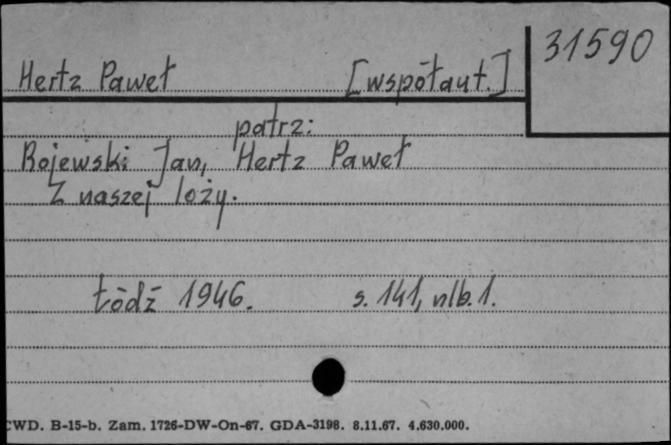 31590
Hertz Paweł [współaut.]
patrz:
Rojewski Jan, Hertz Paweł
Z naszej loży.
Łódź 1946. s. 141, nlb. 1.
CWD. B-15-b. Zam. 1726-DW-On-67. GDA-3198. 8.11.67. 4.630.000.